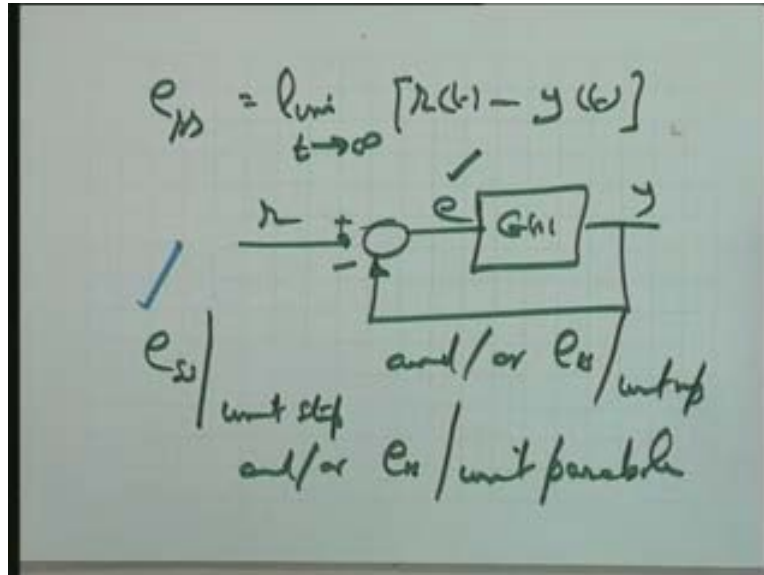 e_ss = limit [r(t) - y(t)]
t→∞
r + e G(s) y
-
e_ss | unit step and/or e_ss | unit ramp
and/or e_ss | unit parabola